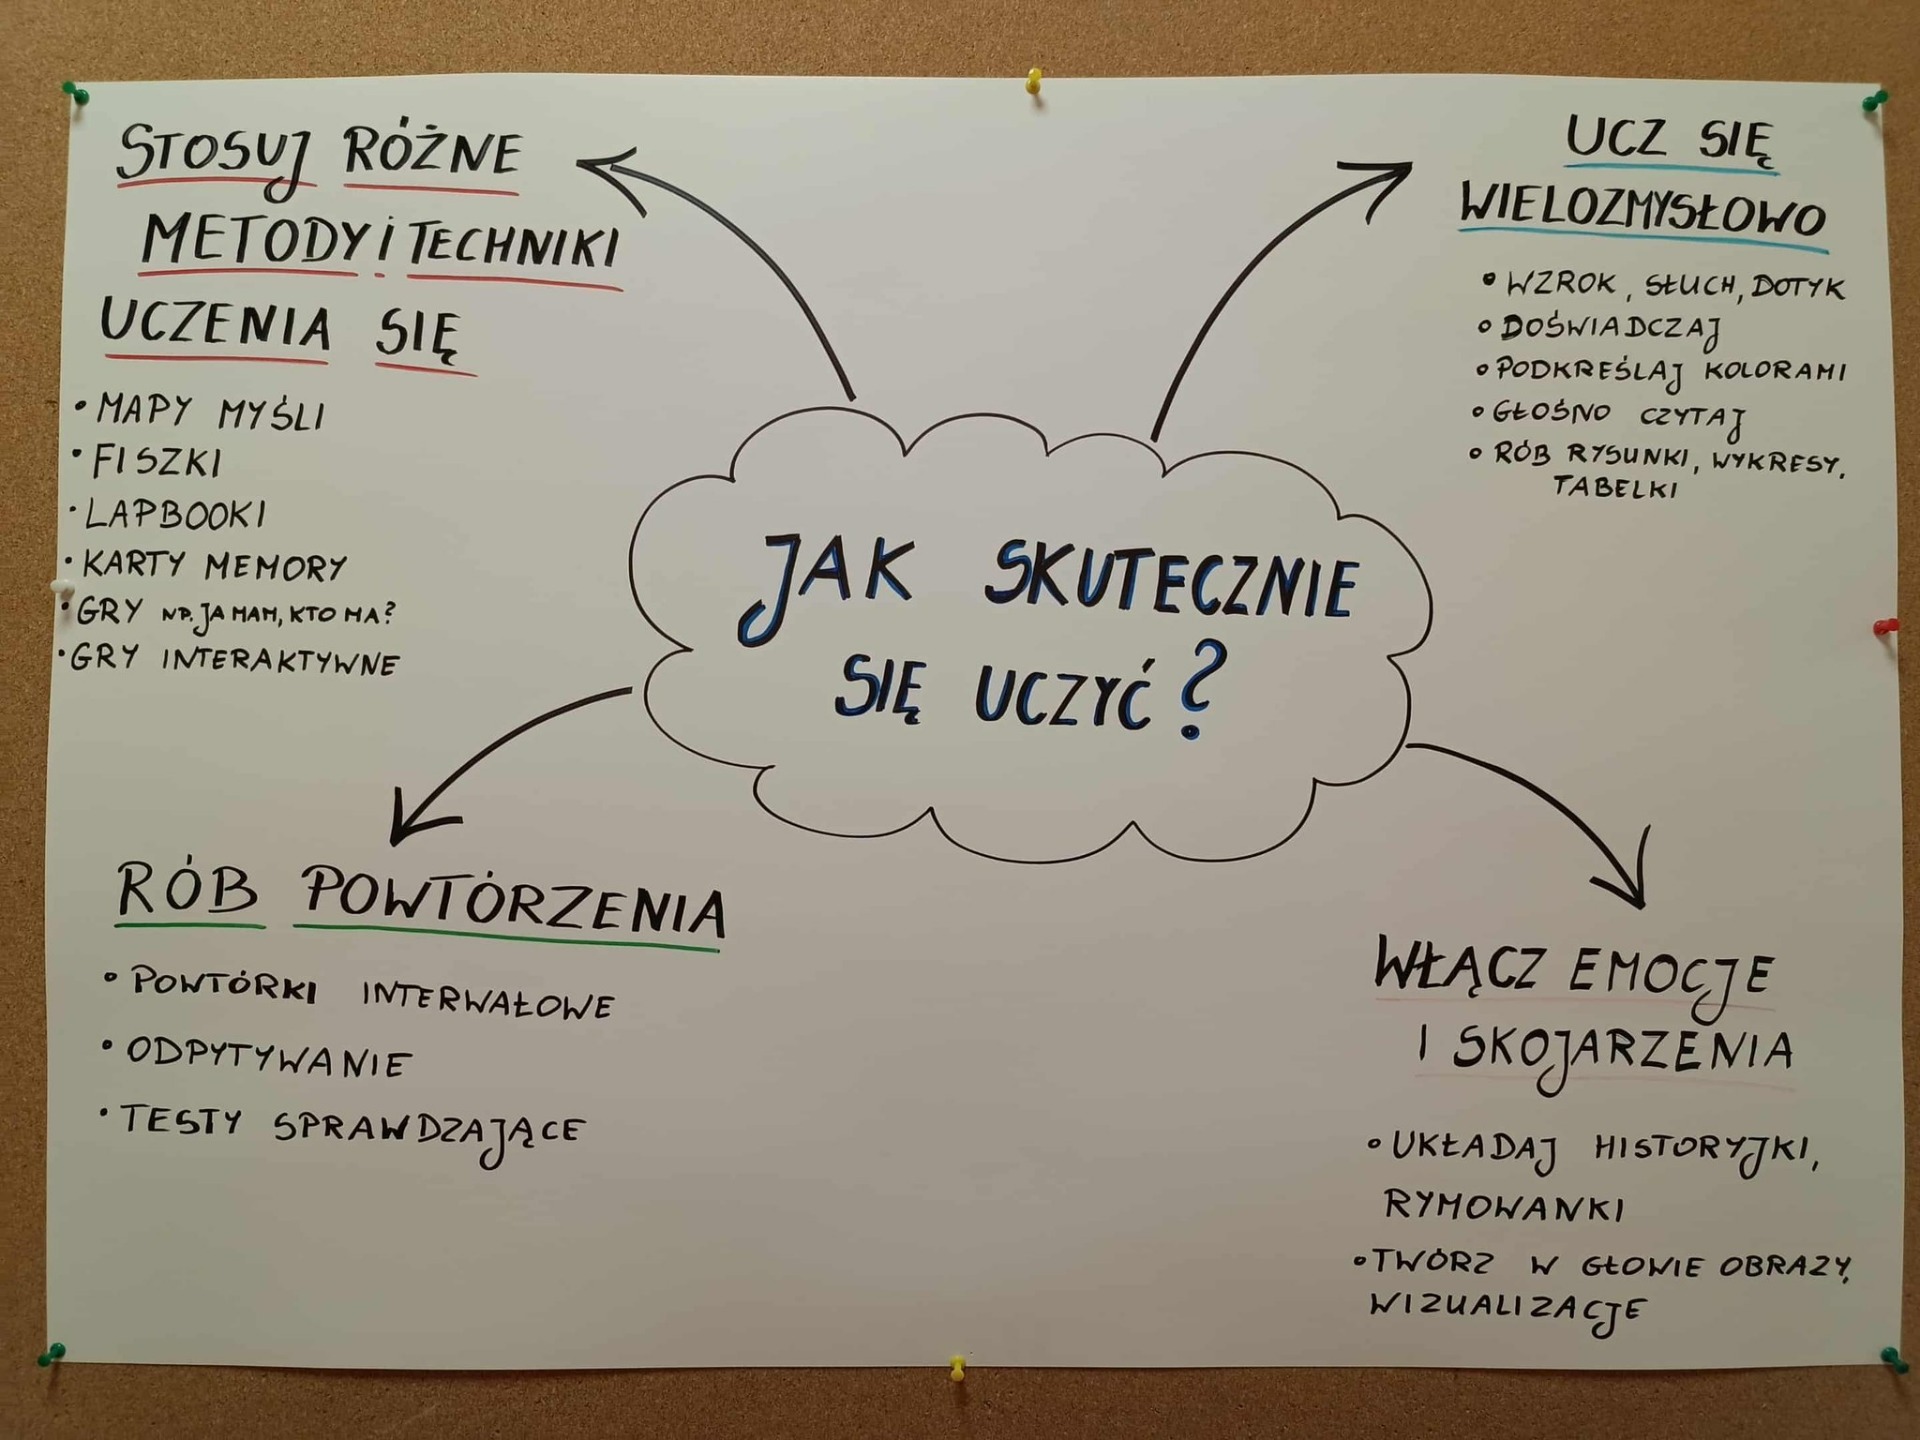 STOSUJ RÓŻNE
METODY i TECHNIKI
UCZENIA SIĘ
• MAPY MYŚLI
• FISZKI
• LAPBOOKI
• KARTY MEMORY
• GRY NP. JA MAM, KTO MA?
• GRY INTERAKTYWNE
UCZ SIĘ
WIELOZMYSŁOWO
• WZROK, SŁUCH, DOTYK
• DOŚWIADCZAJ
• PODKREŚLAJ KOLORAMI
• GŁOŚNO CZYTAJ
• RÓB RYSUNKI, WYKRESY,
TABELKI
JAK SKUTECZNIE
SIĘ UCZYĆ?
RÓB POWTÓRZENIA
• POWTÓRKI INTERWAŁOWE
• ODPYTYWANIE
• TESTY SPRAWDZAJĄCE
WŁĄCZ EMOCJE
I SKOJARZENIA
• UKŁADAJ HISTORYJKI,
RYMOWANKI
• TWÓRZ W GŁOWIE OBRAZY,
WIZUALIZACJE